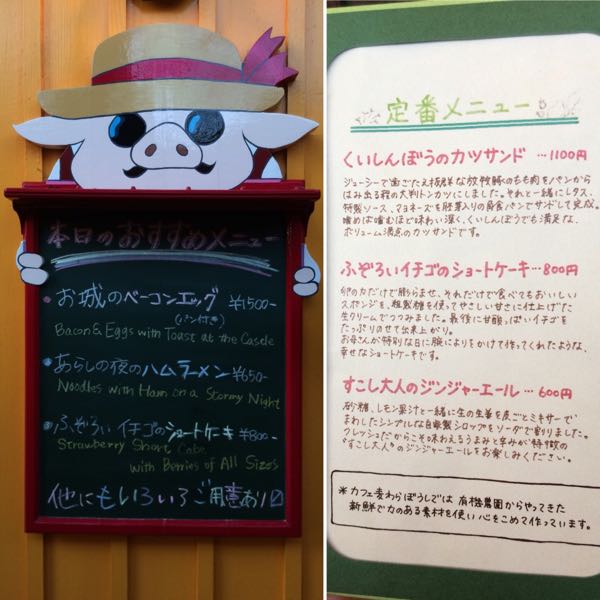 本日のおすすめメニュー
お城のベーコンエッグ ¥1500-
(パン付き)
Bacon & Eggs with Toast at the Castle
あらしの夜のハムラーメン ¥650-
Noodles with Ham on a Stormy Night
ふぞろいイチゴのショートケーキ ¥800-
Strawberry Short Cake
with Berries of All Sizes
他にもいろいろご用意あり〼
定番メニュー
くいしんぼうのカツサンド …1100円
ジューシーで歯ごたえ抜群な放牧豚のもも肉をパンから
はみ出る程の大判トンカツにしました。それと一緒にレタス、
特製ソース、マヨネーズを胚芽入りの角食パンでサンドして完成。
噛めば噛むほど味わい深く、くいしんぼうでも満足な、
ボリューム満点のカツサンドです。
ふぞろいイチゴのショートケーキ…800円
卵の力だけで膨らませ、それだけで食べてもおいしい
スポンジを、粗製糖を使ってやさしい甘さに仕上げた
生クリームでつつみました。最後に甘酸っぱいイチゴを
たっぷりのせて出来上がり。
お母さんが特別な日に腕によりをかけて作ってくれたような、
幸せなショートケーキです。
すこし大人のジンジャーエール …600円
砂糖、レモン果汁と一緒に生の生姜を皮ごとミキサーで
まわしたシンプルな自家製シロップをソーダで割りました。
フレッシュだからこそ味わえるうまみと辛みが特徴の
"すこし大人"のジンジャーエールをお楽しみください。
*カフェ麦わらぼうしでは 有機農園からやってきた
新鮮で力のある素材を使い 心をこめて作っています。